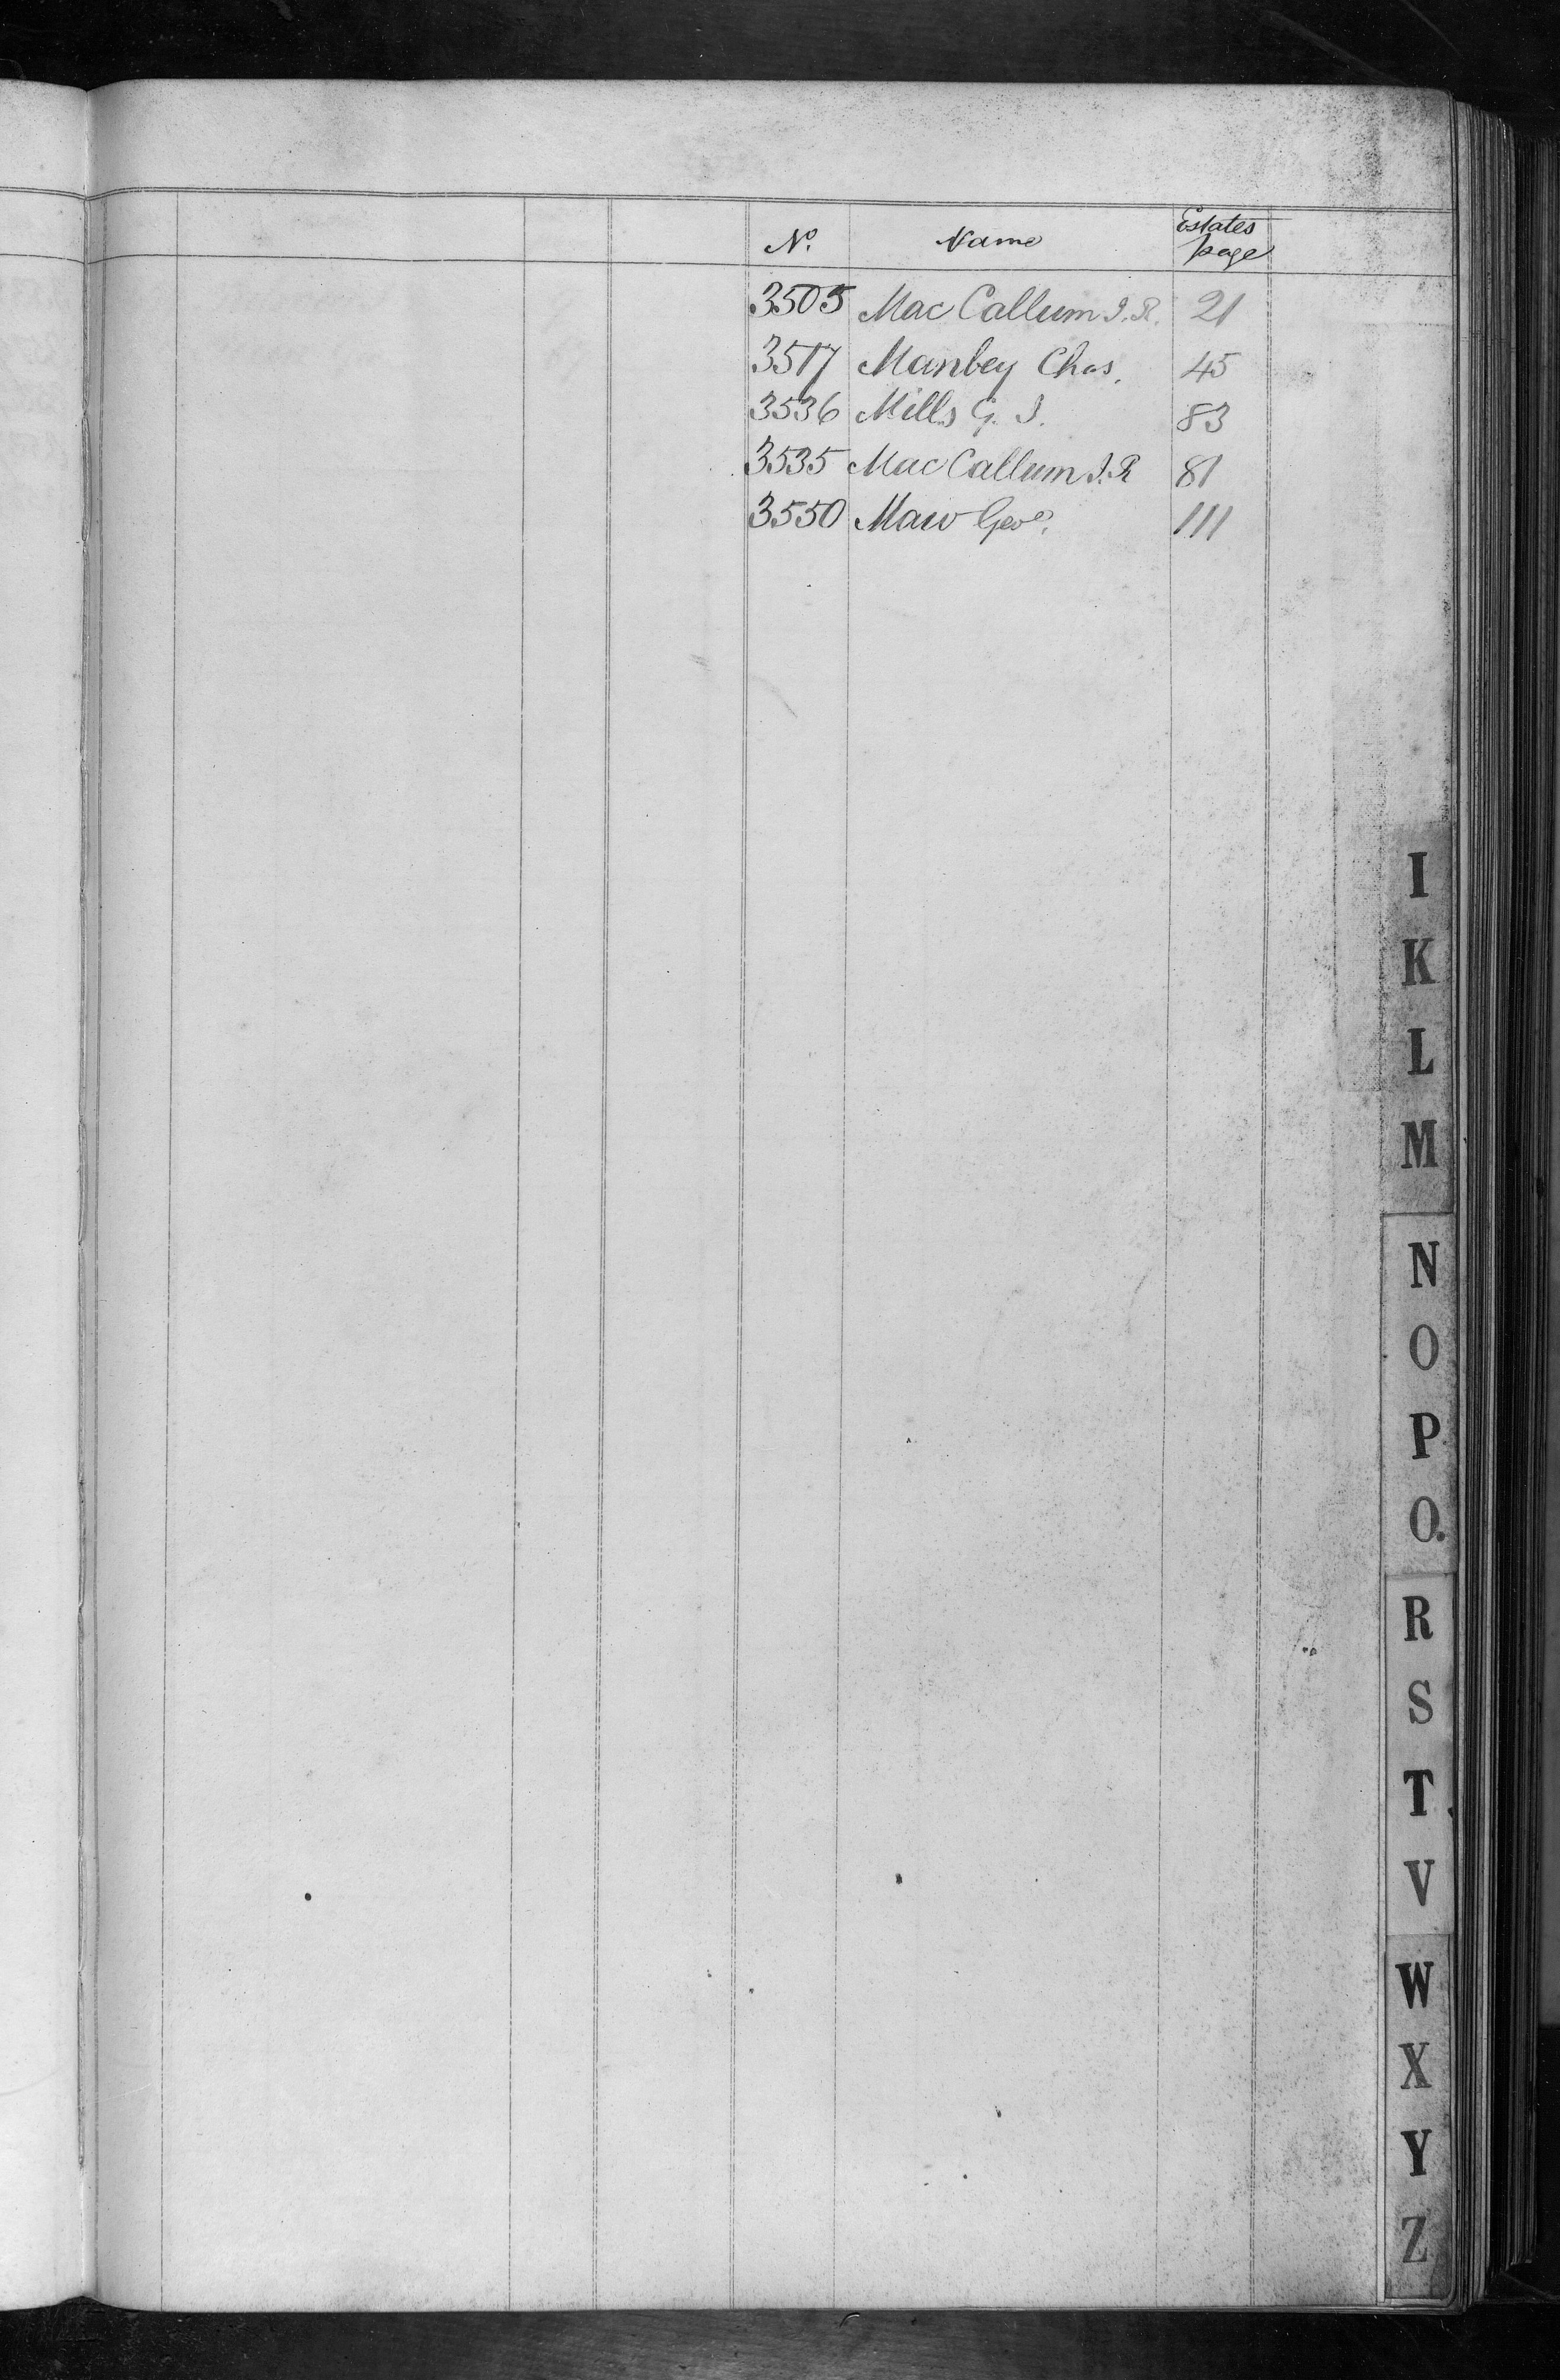 No. Name Estates page
3505 Mac Callum J. R. 21
3517 Manbey Chas. 45
3536 Mills G. J. 83
3535 Mac Callum J. R 81
3550 Maw Geoe. 111
I
K
L
M
N
O
P
Q.
R
S
T
V
W
X
Y
Z